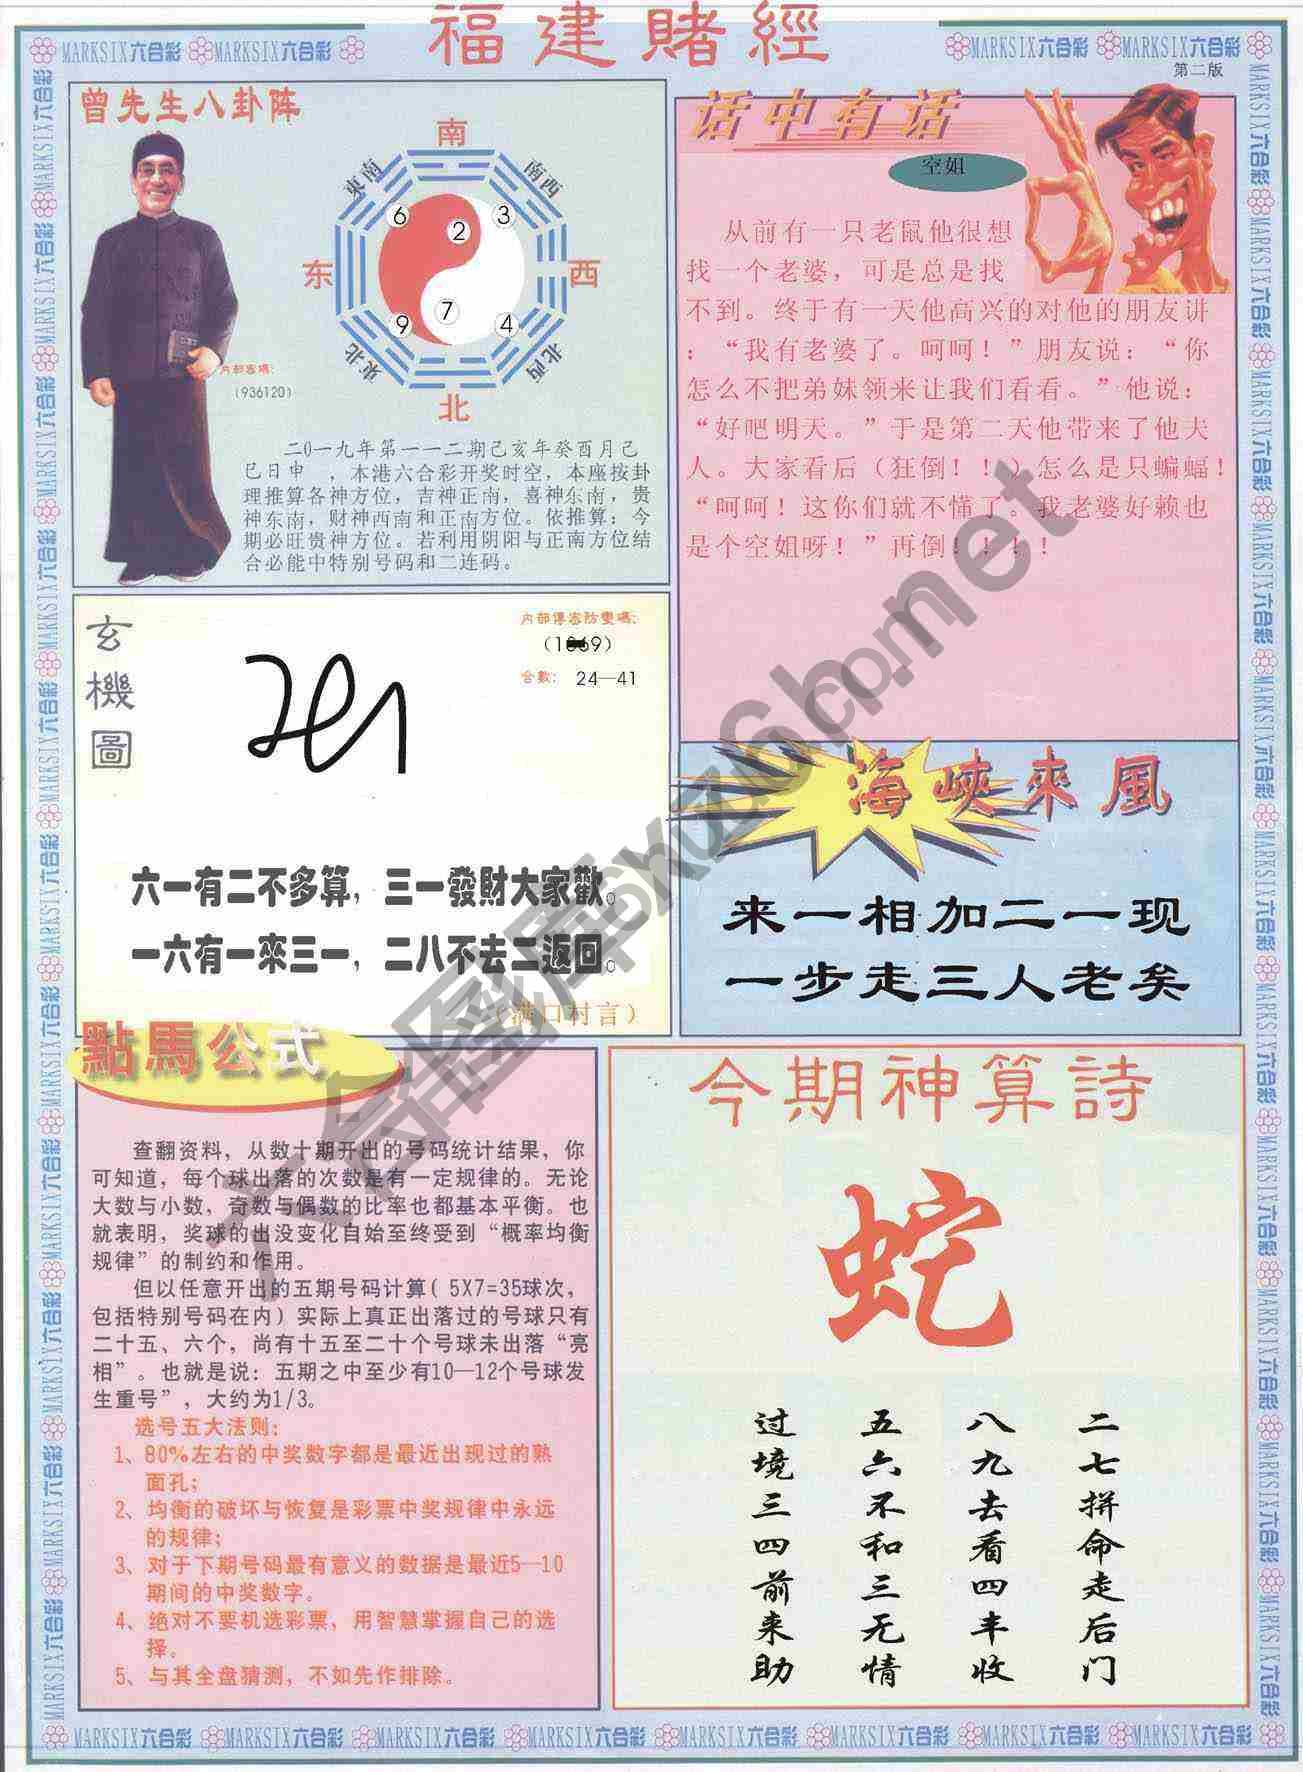 福建賭經
MARKSIX六合彩 MARKSIX六合彩
MARKSIX六合彩 MARKSIX六合彩
第二版
曾先生八卦阵
南
東南
南西
6
2
3
东
西
9
7
4
東北
北西
北
内部密碼:
(936120)
二0一九年第一一二期己亥年癸酉月己
巳日申 ,本港六合彩开奖时空,本座按卦
理推算各神方位,吉神正南,喜神东南,贵
神东南,财神西南和正南方位。依推算:今
期必旺贵神方位。若利用阴阳与正南方位结
合必能中特别号码和二连码。
话中有话
空姐
从前有一只老鼠他很想
找一个老婆,可是总是找
不到。终于有一天他高兴的对他的朋友讲
:“我有老婆了。呵呵!”朋友说:“你
怎么不把弟妹领来让我们看看。”他说:
“好吧明天。”于是第二天他带来了他夫
人。大家看后(狂倒!!)怎么是只蝙蝠!
“呵呵!这你们就不懂了。我老婆好赖也
是个空姐呀!”再倒!!!!
玄機圖
内部傳密防變碼:
合數: 24—41
六一有二不多算,三一發財大家歡。
一六有一來三一,二八不去二返回。
(满口村言)
海峽來風
来一相加二一现
一步走三人老矣
點馬公式
查翻资料,从数十期开出的号码统计结果,你
可知道,每个球出落的次数是有一定规律的。无论
大数与小数,奇数与偶数的比率也都基本平衡。也
就表明,奖球的出没变化自始至终受到“概率均衡
规律”的制约和作用。
但以任意开出的五期号码计算( 5X7=35球次,
包括特别号码在内)实际上真正出落过的号球只有
二十五、六个,尚有十五至二十个号球未出落“亮
相”。也就是说:五期之中至少有10—12个号球发
生重号”,大约为1/3。
选号五大法则:
1、80%左右的中奖数字都是最近出现过的熟
面孔;
2、均衡的破坏与恢复是彩票中奖规律中永远
的规律;
3、对于下期号码最有意义的数据是最近5—10
期间的中奖数字。
4、绝对不要机选彩票,用智慧掌握自己的选
择。
5、与其全盘猜测,不如先作排除。
今期神算詩
蛇
二七拼命走后门
八九去看四丰收
五六不和三无情
过境三四前来助
MARKSIX六合彩 MARKSIX六合彩 MARKSIX六合彩 MARKSIX六合彩 MARKSIX六合彩 MARKSIX六合彩 MARKSIX六合彩 MARKSIX六合彩